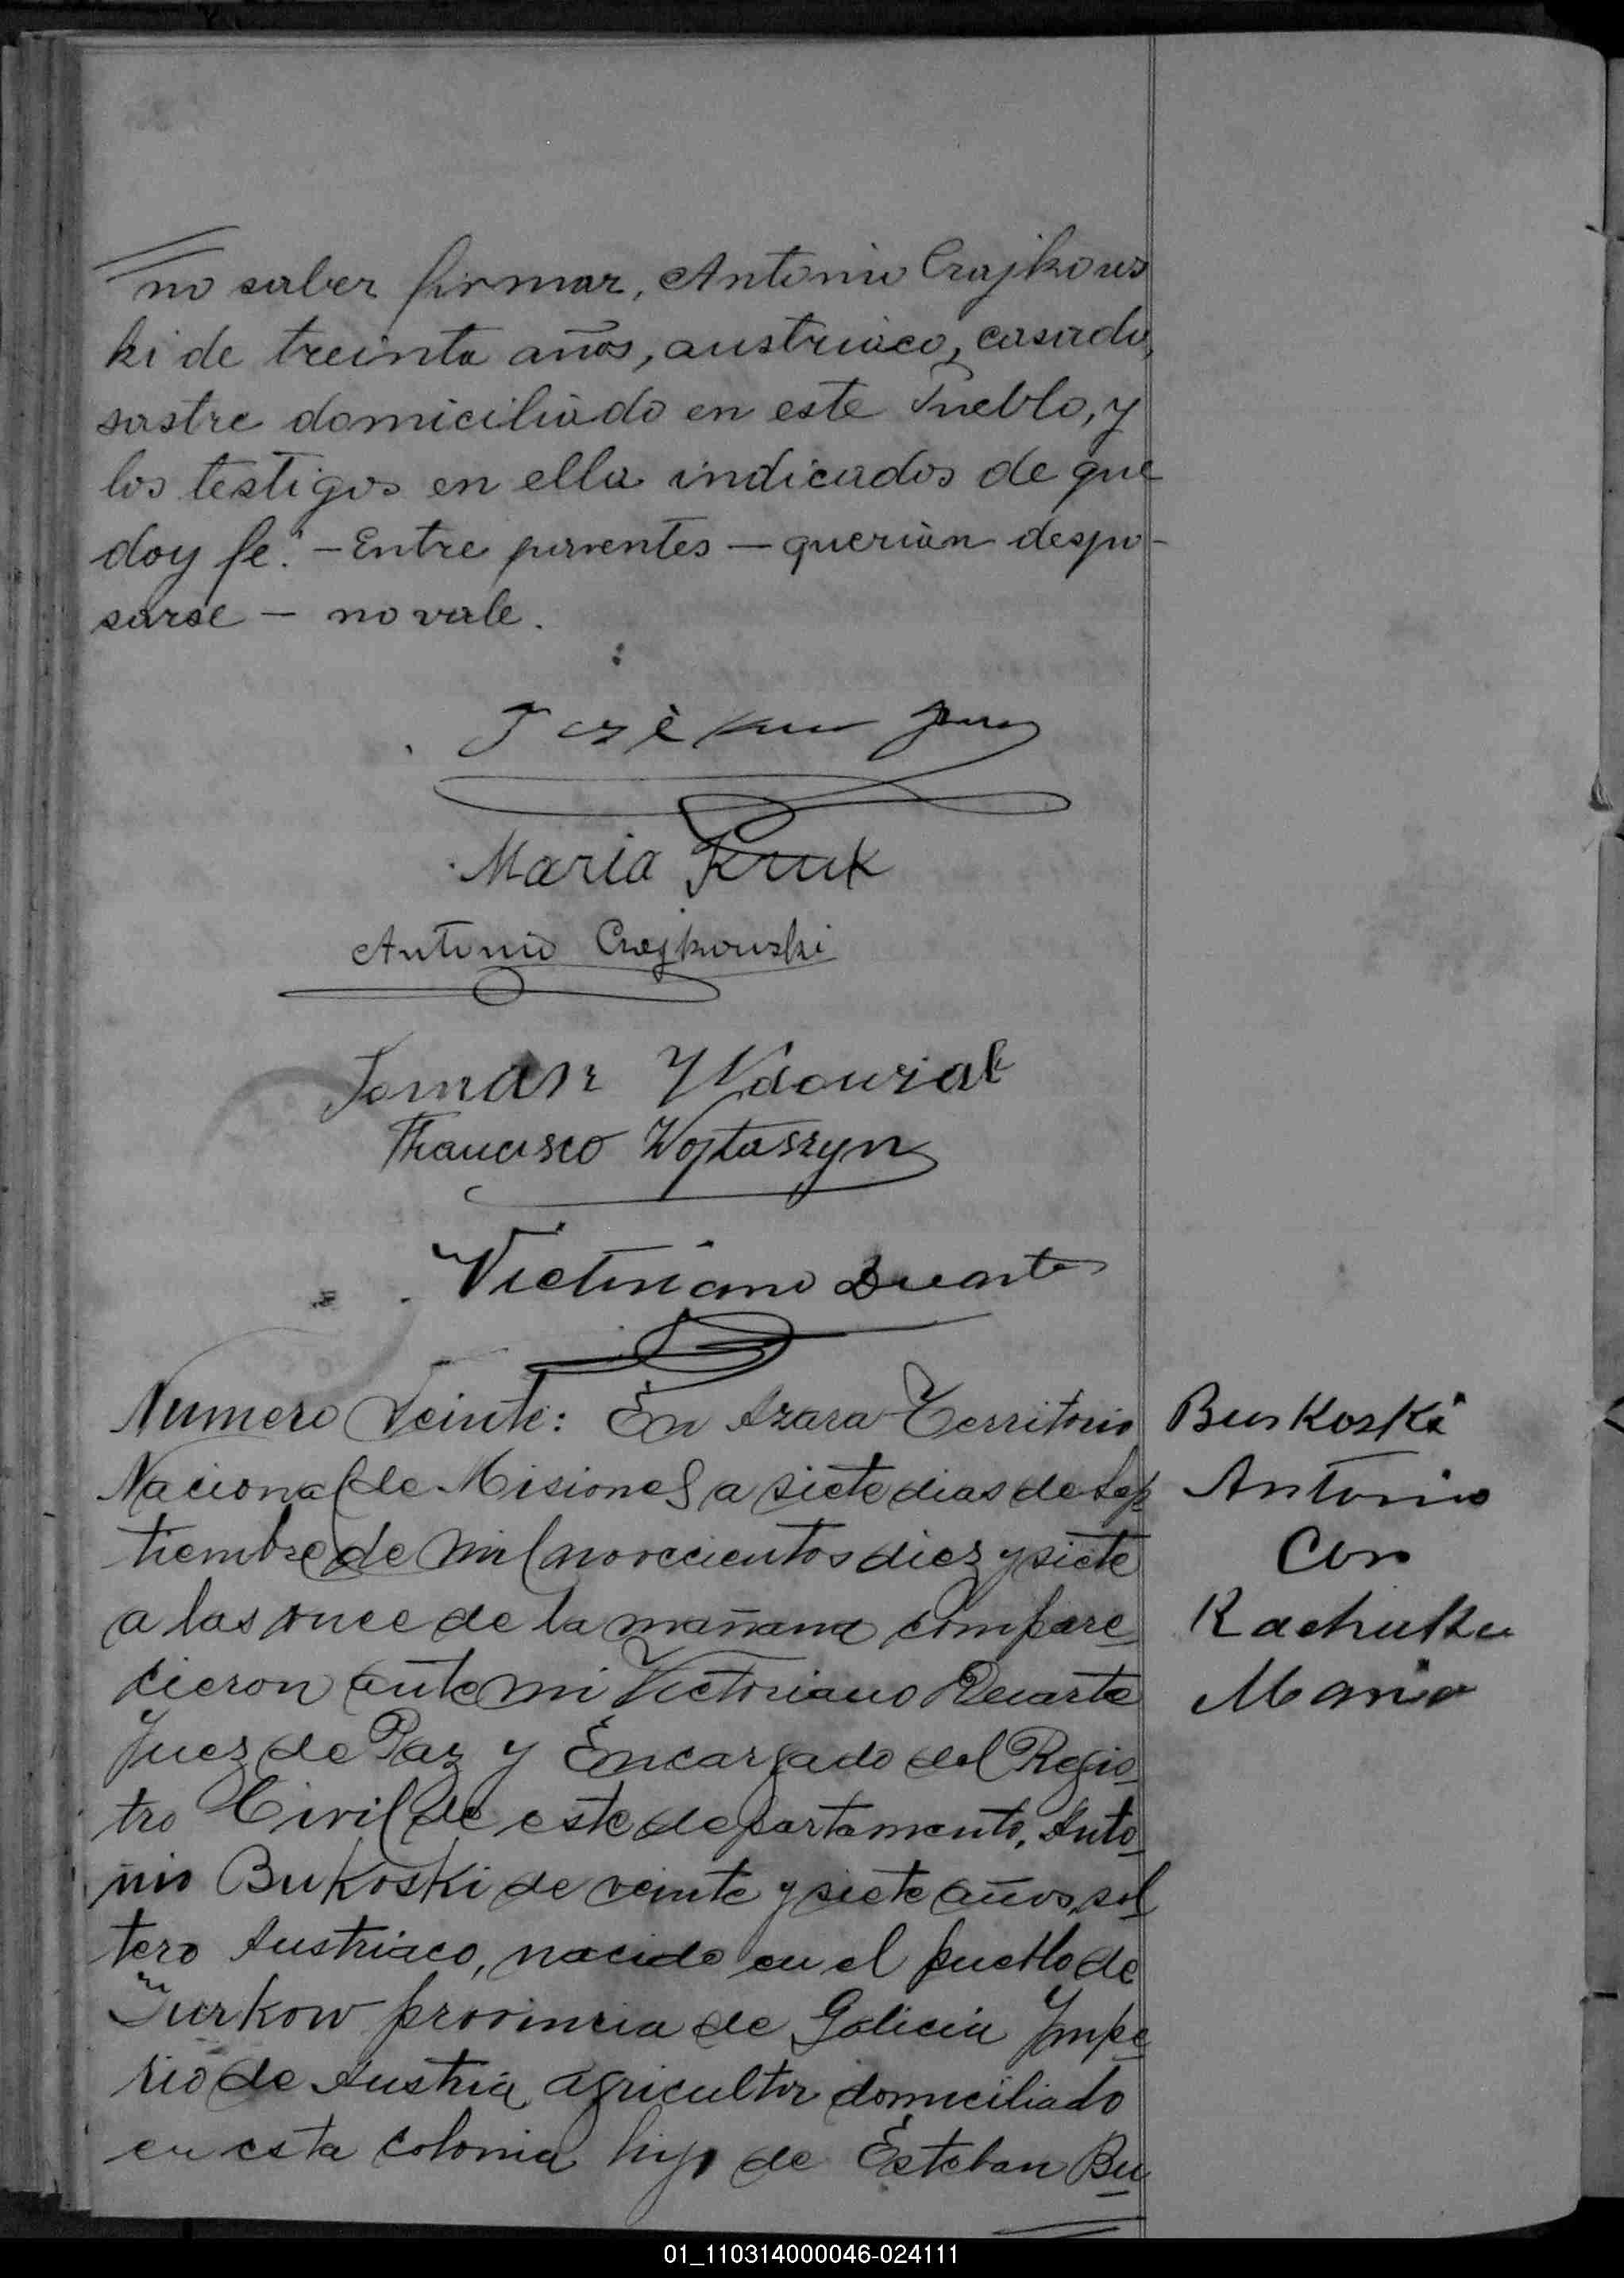 no saber firmar, Antonio Crajkows
ki de treinta años, austriaco, casado,
sastre domiciliado en este Pueblo, y
los testigos en ella indicados de que
doy fe. - Entre parentes - querian despo-
sarse - no vale.
Maria Kruk
Antonio Crajkowski
Wdowiak
Francisco Wojtaszyn
Victoriano Duarte
Numero Veinte: En Azara Territorio
Nacional de Misiones a siete dias de Sep
tiembre de mil novecientos diez y siete
a las once de la mañana compare
cieron ante mi Victoriano Duarte
Juez de Paz y Encargado del Regis
tro Civil de este departamento, Anto
nio Bukoski de veinte y siete años, sol
tero Austriaco, nacido en el pueblo de
Turkow provincia de Galicia Impe
rio de Austria agricultor domiciliado
en esta colonia hijo de Esteban Bu
Buskoski
Antonio
Con
Kachutka
Maria
01_110314000046-024111